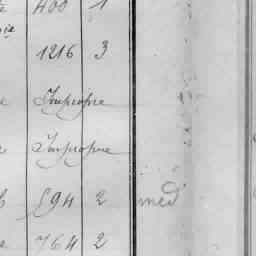 400 1
1216 3
Impropre
Impropre
594 2 med
764 2